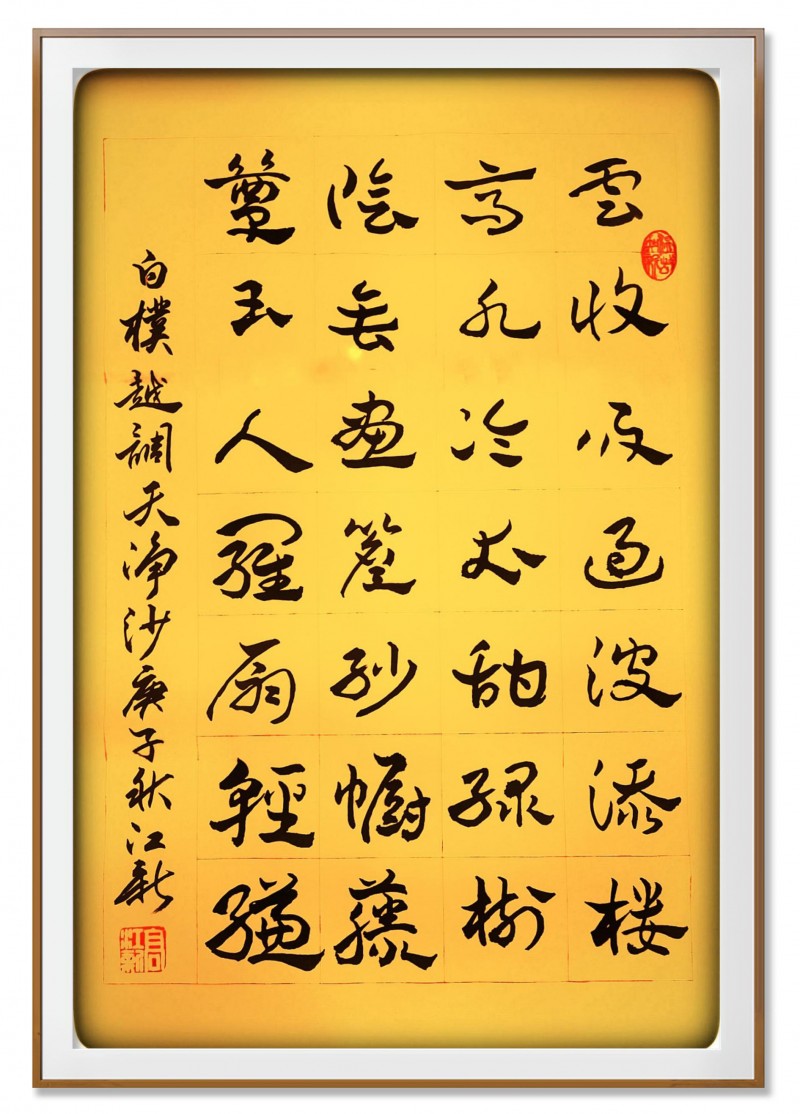 雲收雨過波添楼
高水冷瓜甜緑樹
陰垂畫簷紗幮藤
簟玉人羅扇輕縑
白樸越調天淨沙庚子秋江新